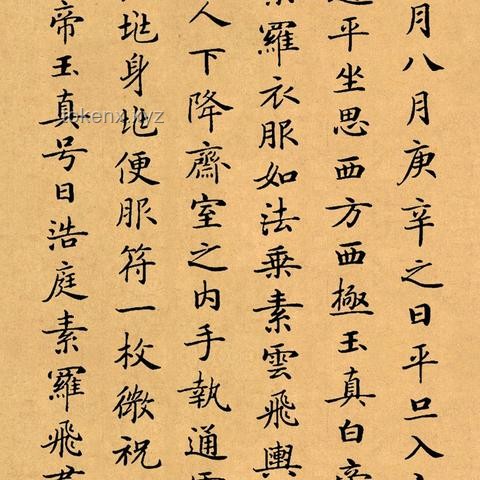 月八月庚辛之日平旦入
平坐思西方西極玉真白帝
素羅衣服如法乘素雲飛輿
人下降齋室之内手執通
兆身兆便服符一枚微祝
帝玉真号曰浩庭素羅飛